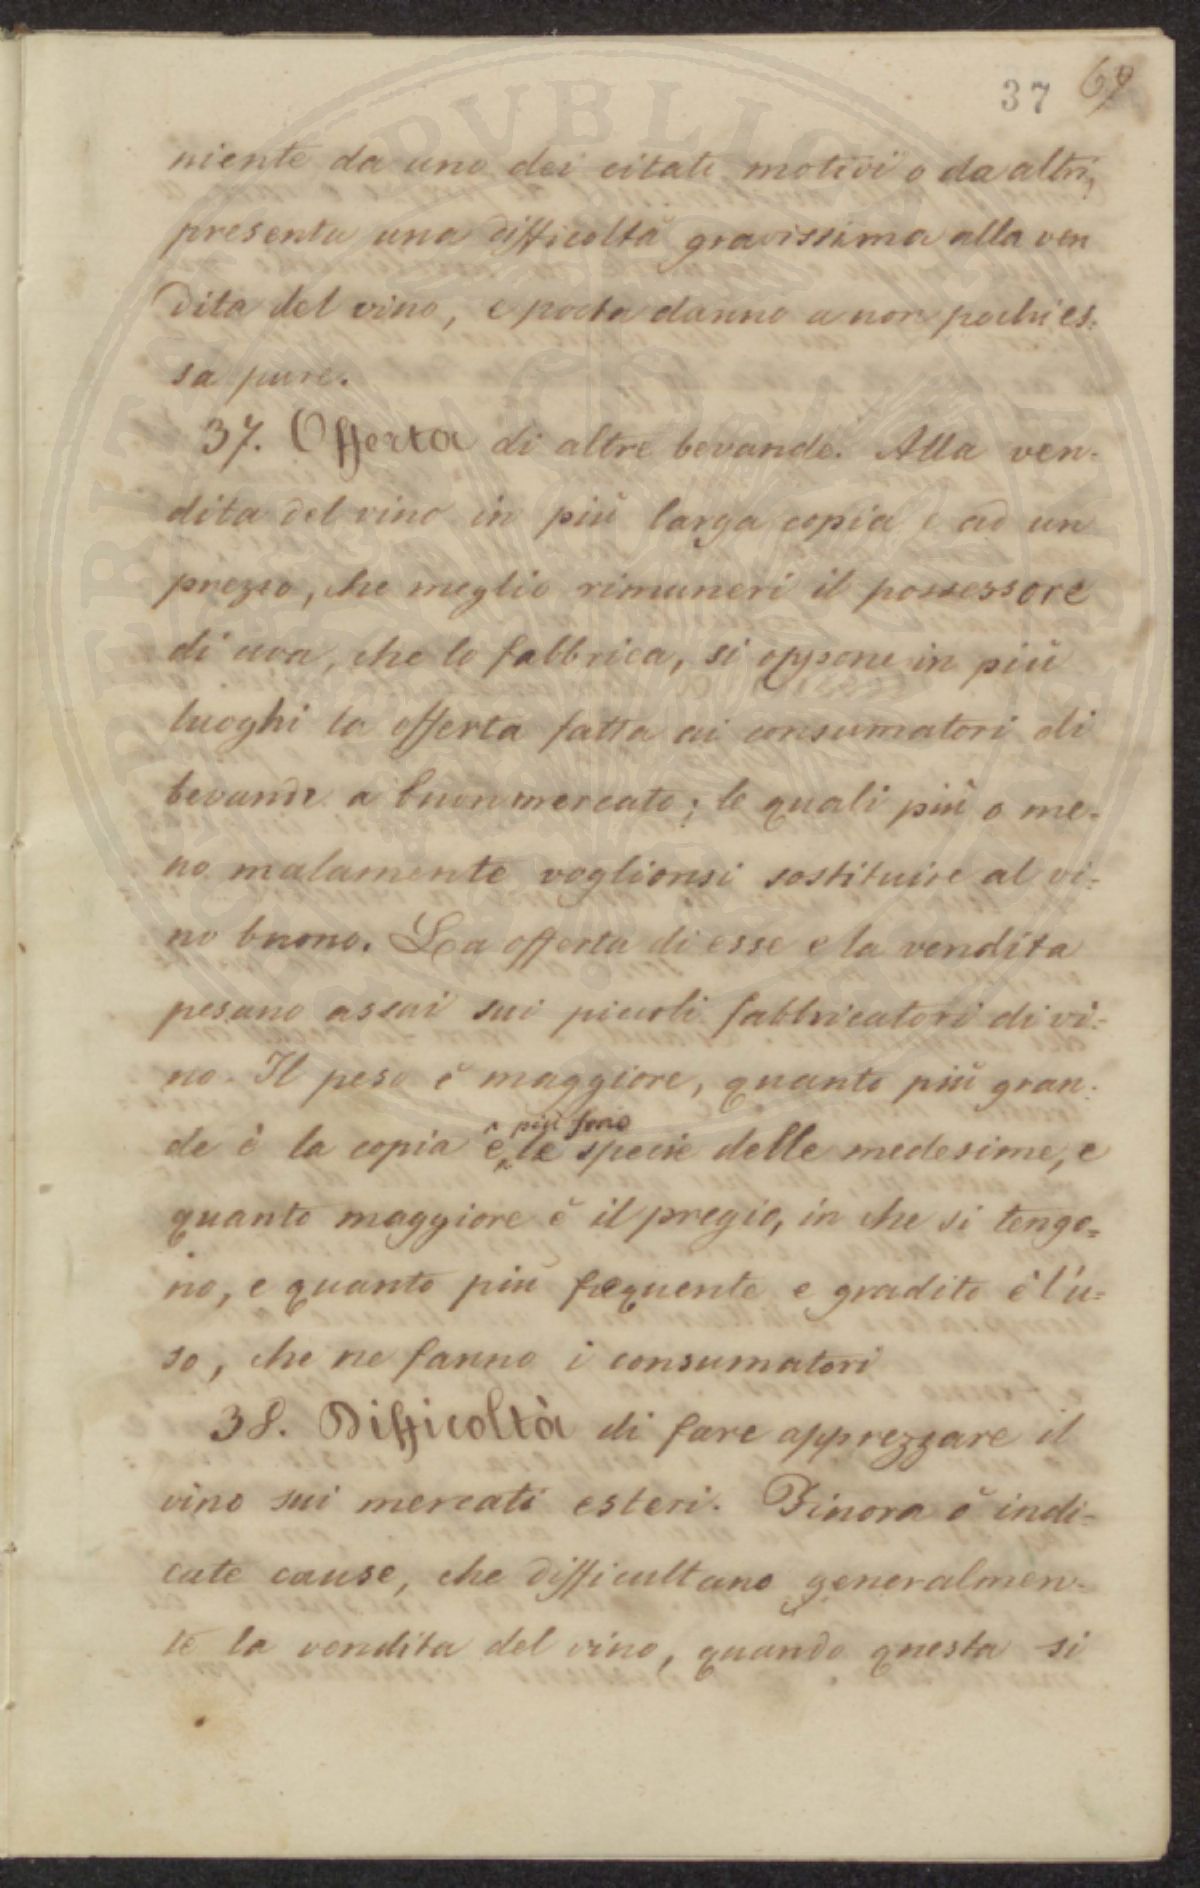 37 69
niente da uno dei citati motivi o da altri,
presenta una difficoltà gravissima alla ven
dita del vino, e porta danno a non pochi es-
sa pure.
37. Offerta di altre bevande. Alla ven-
dita del vino in più larga copia e ad un
prezzo, che meglio rimuneri il possessore
di uva, che lo fabbrica, si oppone in più
luoghi la offerta fatta ai consumatori di
bevande a buon mercato; le quali più o me-
no malamente voglionsi sostituire al vi-
no buono. La offerta di esse e la vendita
pesano assai sui piccoli fabbricatori di vi-
no. Il peso è maggiore, quanto più gran-
più sono
de è la copia e le specie delle medesime, e
quanto maggiore è il pregio, in che si tengo-
no, e quanto più frequente e gradito è l'u-
so, che ne fanno i consumatori
38. Difficoltà di fare apprezzare il
vino sui mercati esteri. Finora ò indi-
cate cause, che difficultano generalmen-
te la vendita del vino, quando questa si